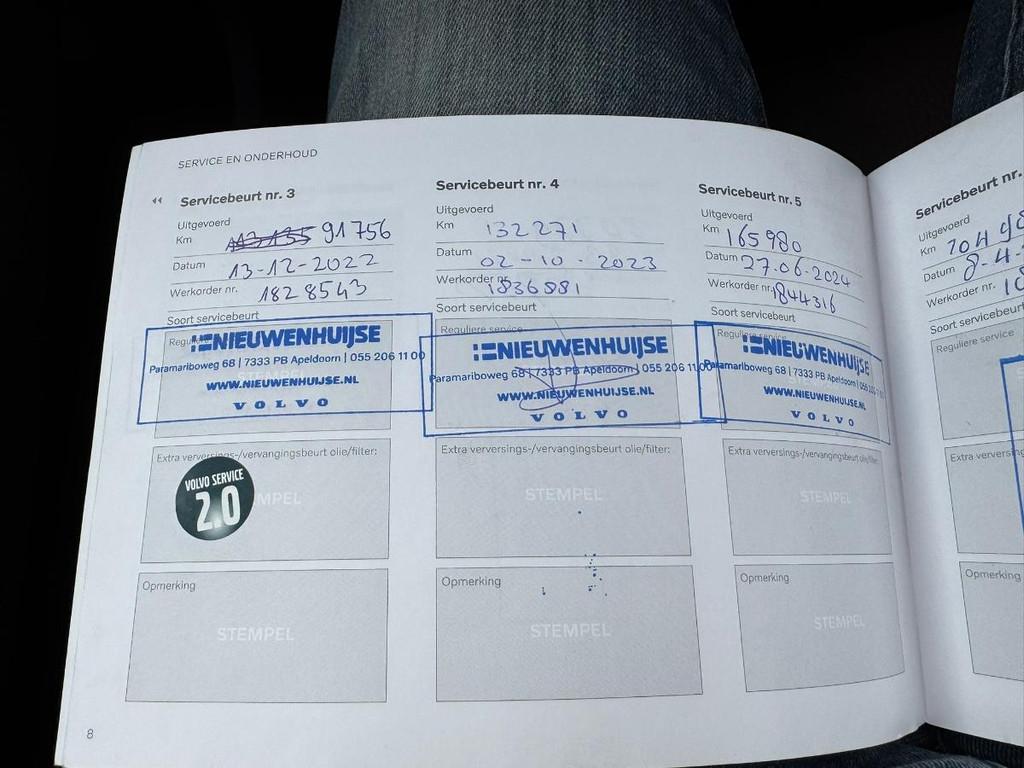 SERVICE EN ONDERHOUD
Servicebeurt nr. 3
Uitgevoerd
Km 91756
Datum 13-12-2022
Werkorder nr. 1828543
Soort servicebeurt
NIEUWENHUIJSE
Paramariboweg 68 | 7333 PB Apeldoorn | 055 206 11 00
WWW.NIEUWENHUIJSE.NL
VOLVO
Extra verversings-/vervangingsbeurt olie/filter:
VOLVO SERVICE
2.0
STEMPEL
Opmerking
STEMPEL
Servicebeurt nr. 4
Uitgevoerd
Km 132271
Datum 02-10-2023
Werkorder nr. 1836881
Soort servicebeurt
Reguliere service
NIEUWENHUIJSE
Paramariboweg 68 | 7333 PB Apeldoorn | 055 206 11 00
WWW.NIEUWENHUIJSE.NL
VOLVO
Extra verversings-/vervangingsbeurt olie/filter:
STEMPEL
Opmerking
STEMPEL
Servicebeurt nr. 5
Uitgevoerd
Km 165980
Datum 27.06-2024
Werkorder nr. 1844316
Soort servicebeurt
Reguliere service
NIEUWENHUIJSE
Paramariboweg 68 | 7333 PB Apeldoorn | 055
WWW.NIEUWENHUIJSE.NL
VOLVO
Extra verversings-/vervangingsbeurt olie/filter:
STEMPEL
Opmerking
STEMPEL
Servicebeurt nr.
Uitgevoerd
Km
Datum 8-4-
Werkorder nr.
Soort servicebeurt
Reguliere service
Extra
Opmerking
8